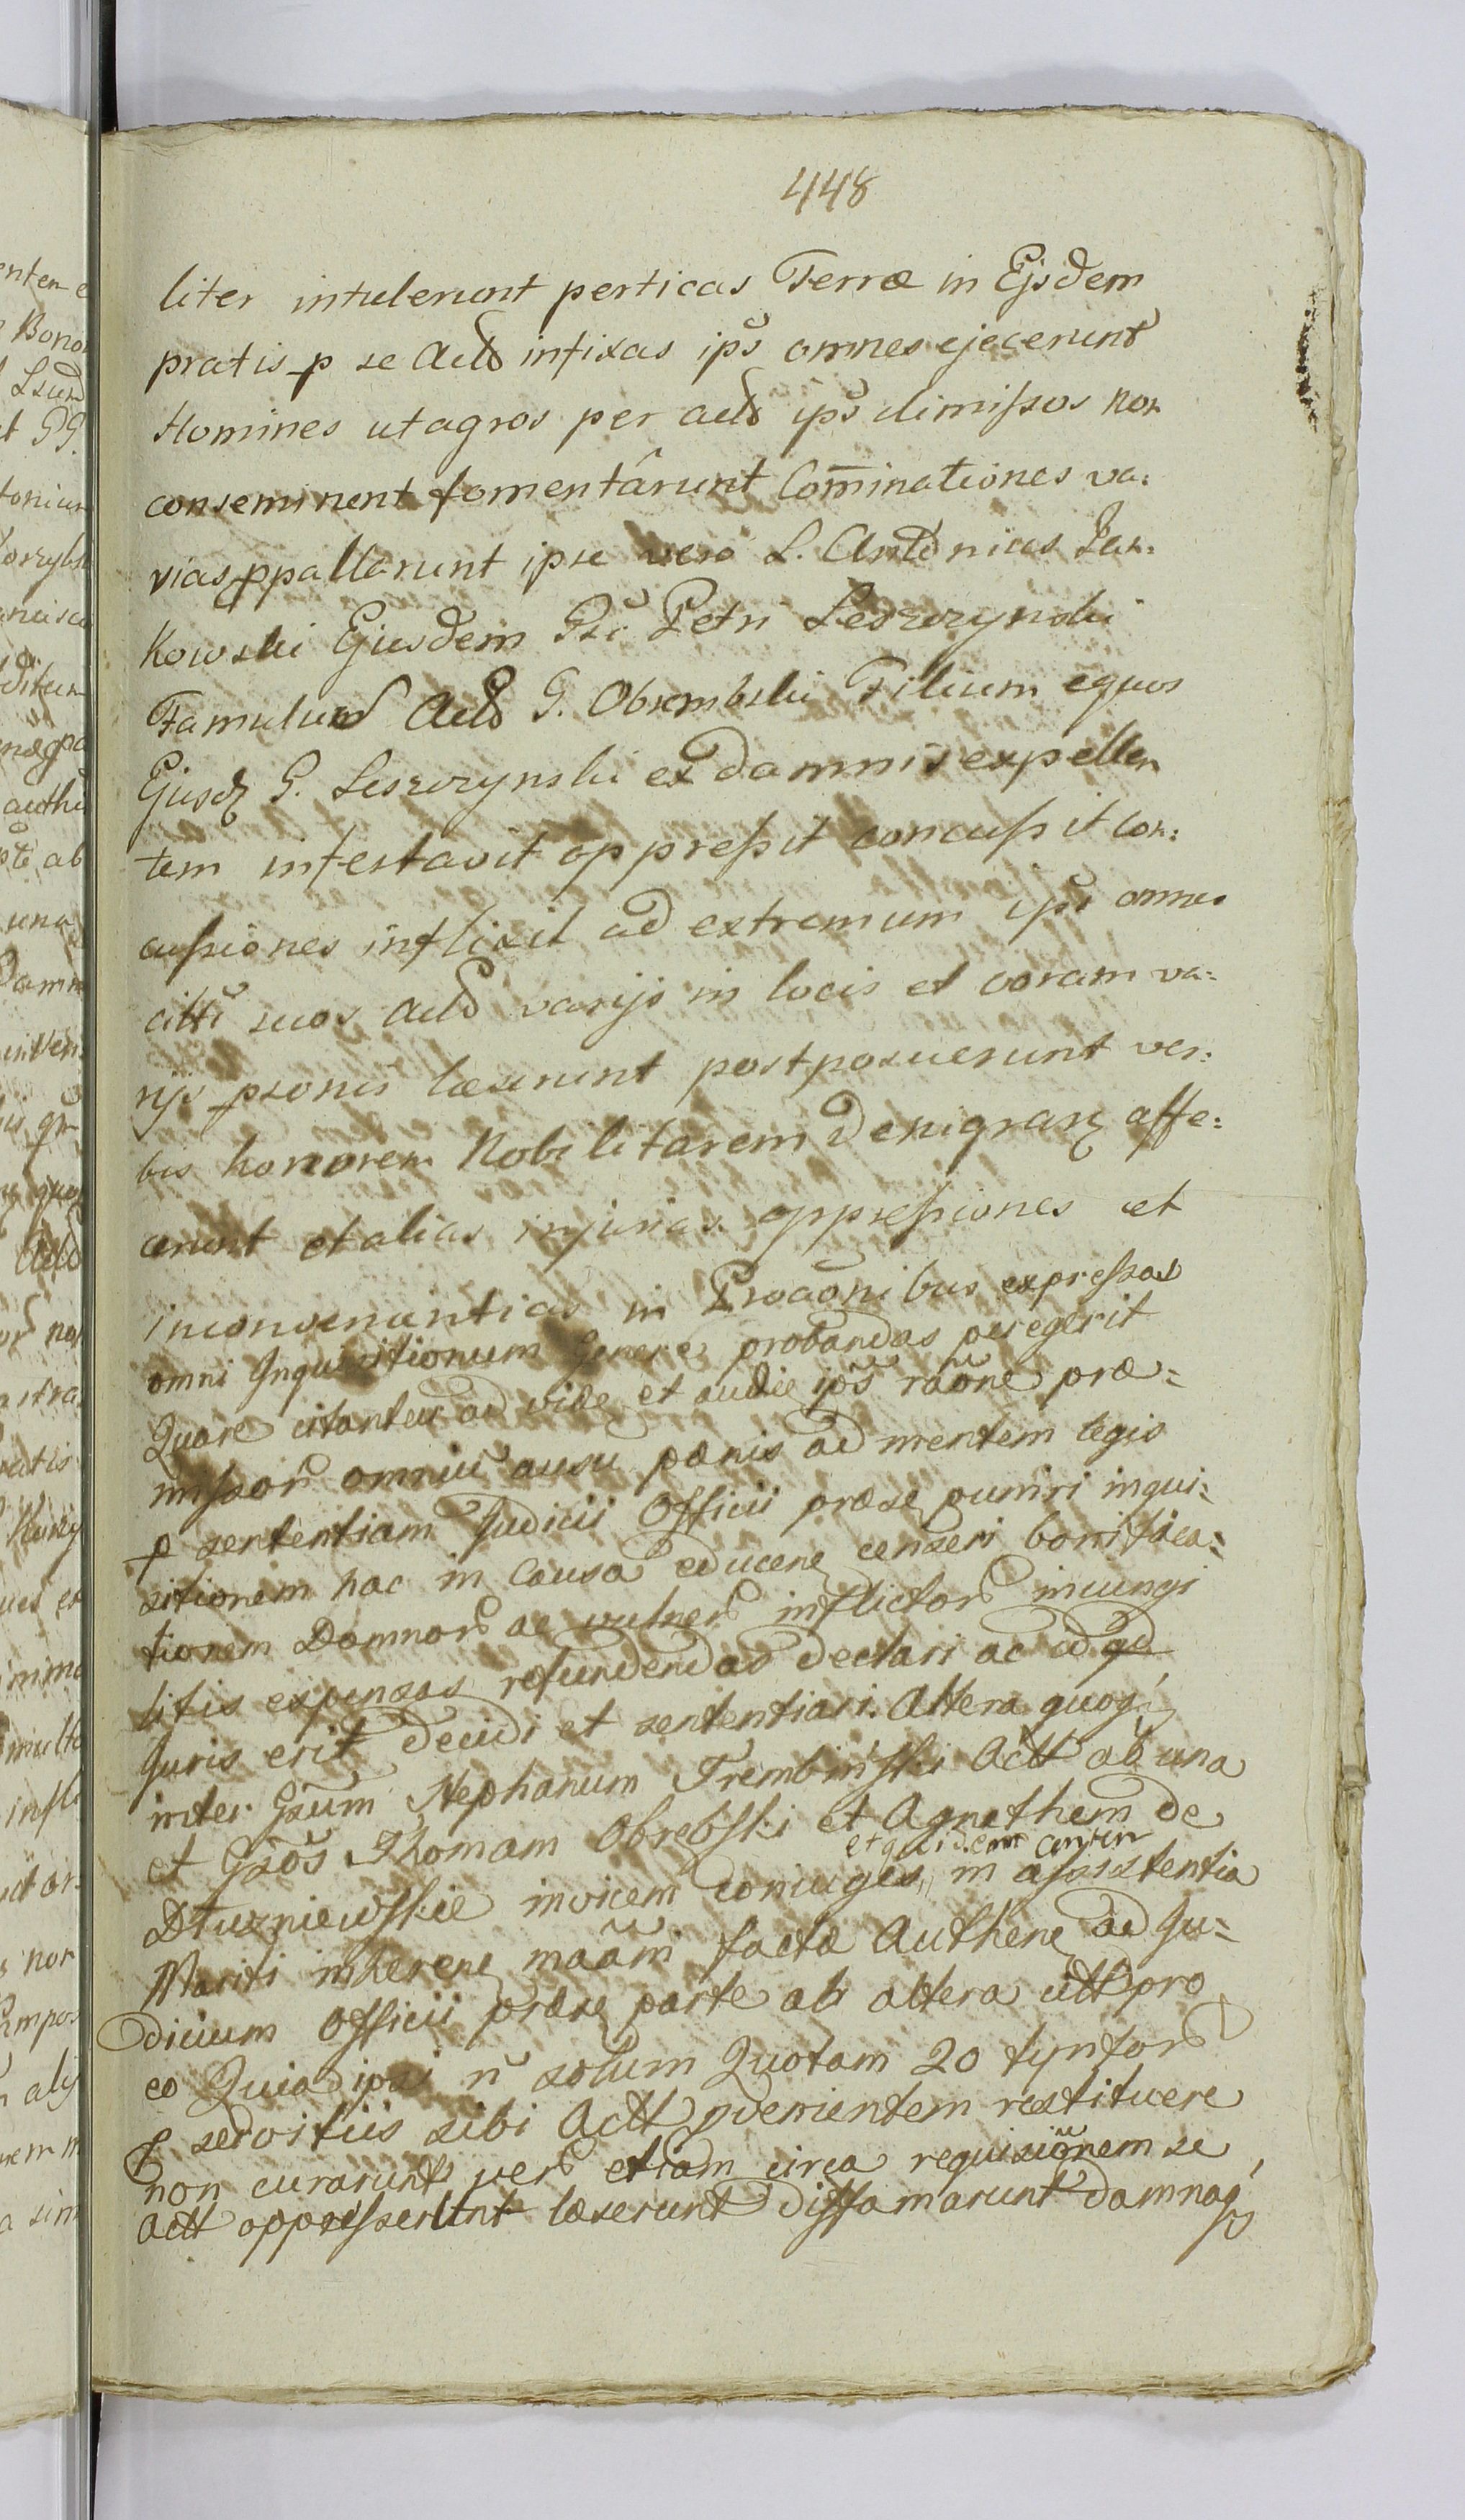 448
liter intulerunt perticas Terræ in Ejsdem
pratis p se Actt infixas ips̃ omnes ejecerunt
Homines ut agros per actt ips̃ dimissos non
conseminent fomentârunt Com̃inationes va:
rias ppallarunt ipse vero L. Antonius Jan:
kowski Ejusdem Gsi Petri Leszczynski
Famulus Actt G. Obrembski Filium equos
Ejusdʒ G. Leszczynski ex damnis expellen
tem infestavit oppressit concussit con:
cussiones inflixit ad extremum ips̃i omnes
citti suos Actt varijs in locis et coram va:
rijs psonis læserunt postposuerunt ver:
bis honorem Nobilitarem denigranʒ affe:
cerunt et alias injurias oppressiones et
inconvenientias in Proaõnibus expressas
omni Inquisitionum genere probandas peregerit
Quare citantur ad vide et audie ips̃ raõne præ=
missor omniũ ausu pænis ad mentem legis
p sententiam Judicii Officii præse puniri inqui:
sitionem hac in Causa educene censeri bonifica=
tionem Damnor ac vulner inflictor iniungi
litis expensas refundendas declari ac id qd
Juris erit decidi et sententiari. Altera quoqʒ
inter Gsum Stephanum Trembinski Actt ab una
et Gsos Thomam Obrebski et Agnethem de
et quidem
Dłuzniewskie invicem coniuges,, in assistentia
Mariti inherene maãm factæ Authene ad Ju=
dicium Officii præse parte ab altera citt pro
eo Quia ipsi ñ solum Quotam 20 tynfor
p servitiis sibi Actt pvenientem restituere
non curarunt ver etiam circa requisiõnem se
actt oppresserunt læserunt diffamarunt damnaqʒ